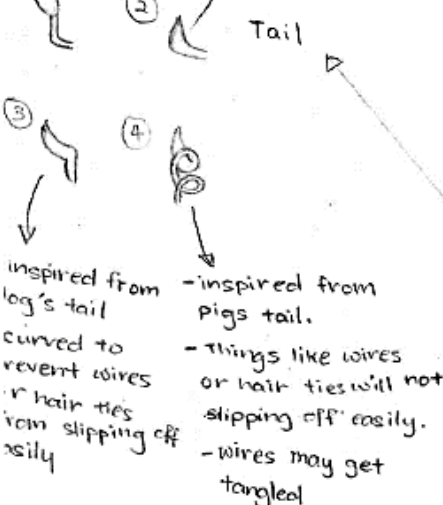 2
Tail
3
4
inspired from
og's tail
curved to
revent wires
r hair ties
rom slipping off
sily
-inspired from
pigs tail.
- Things like wires
or hair ties will not
slipping off easily.
- wires may get
tangled